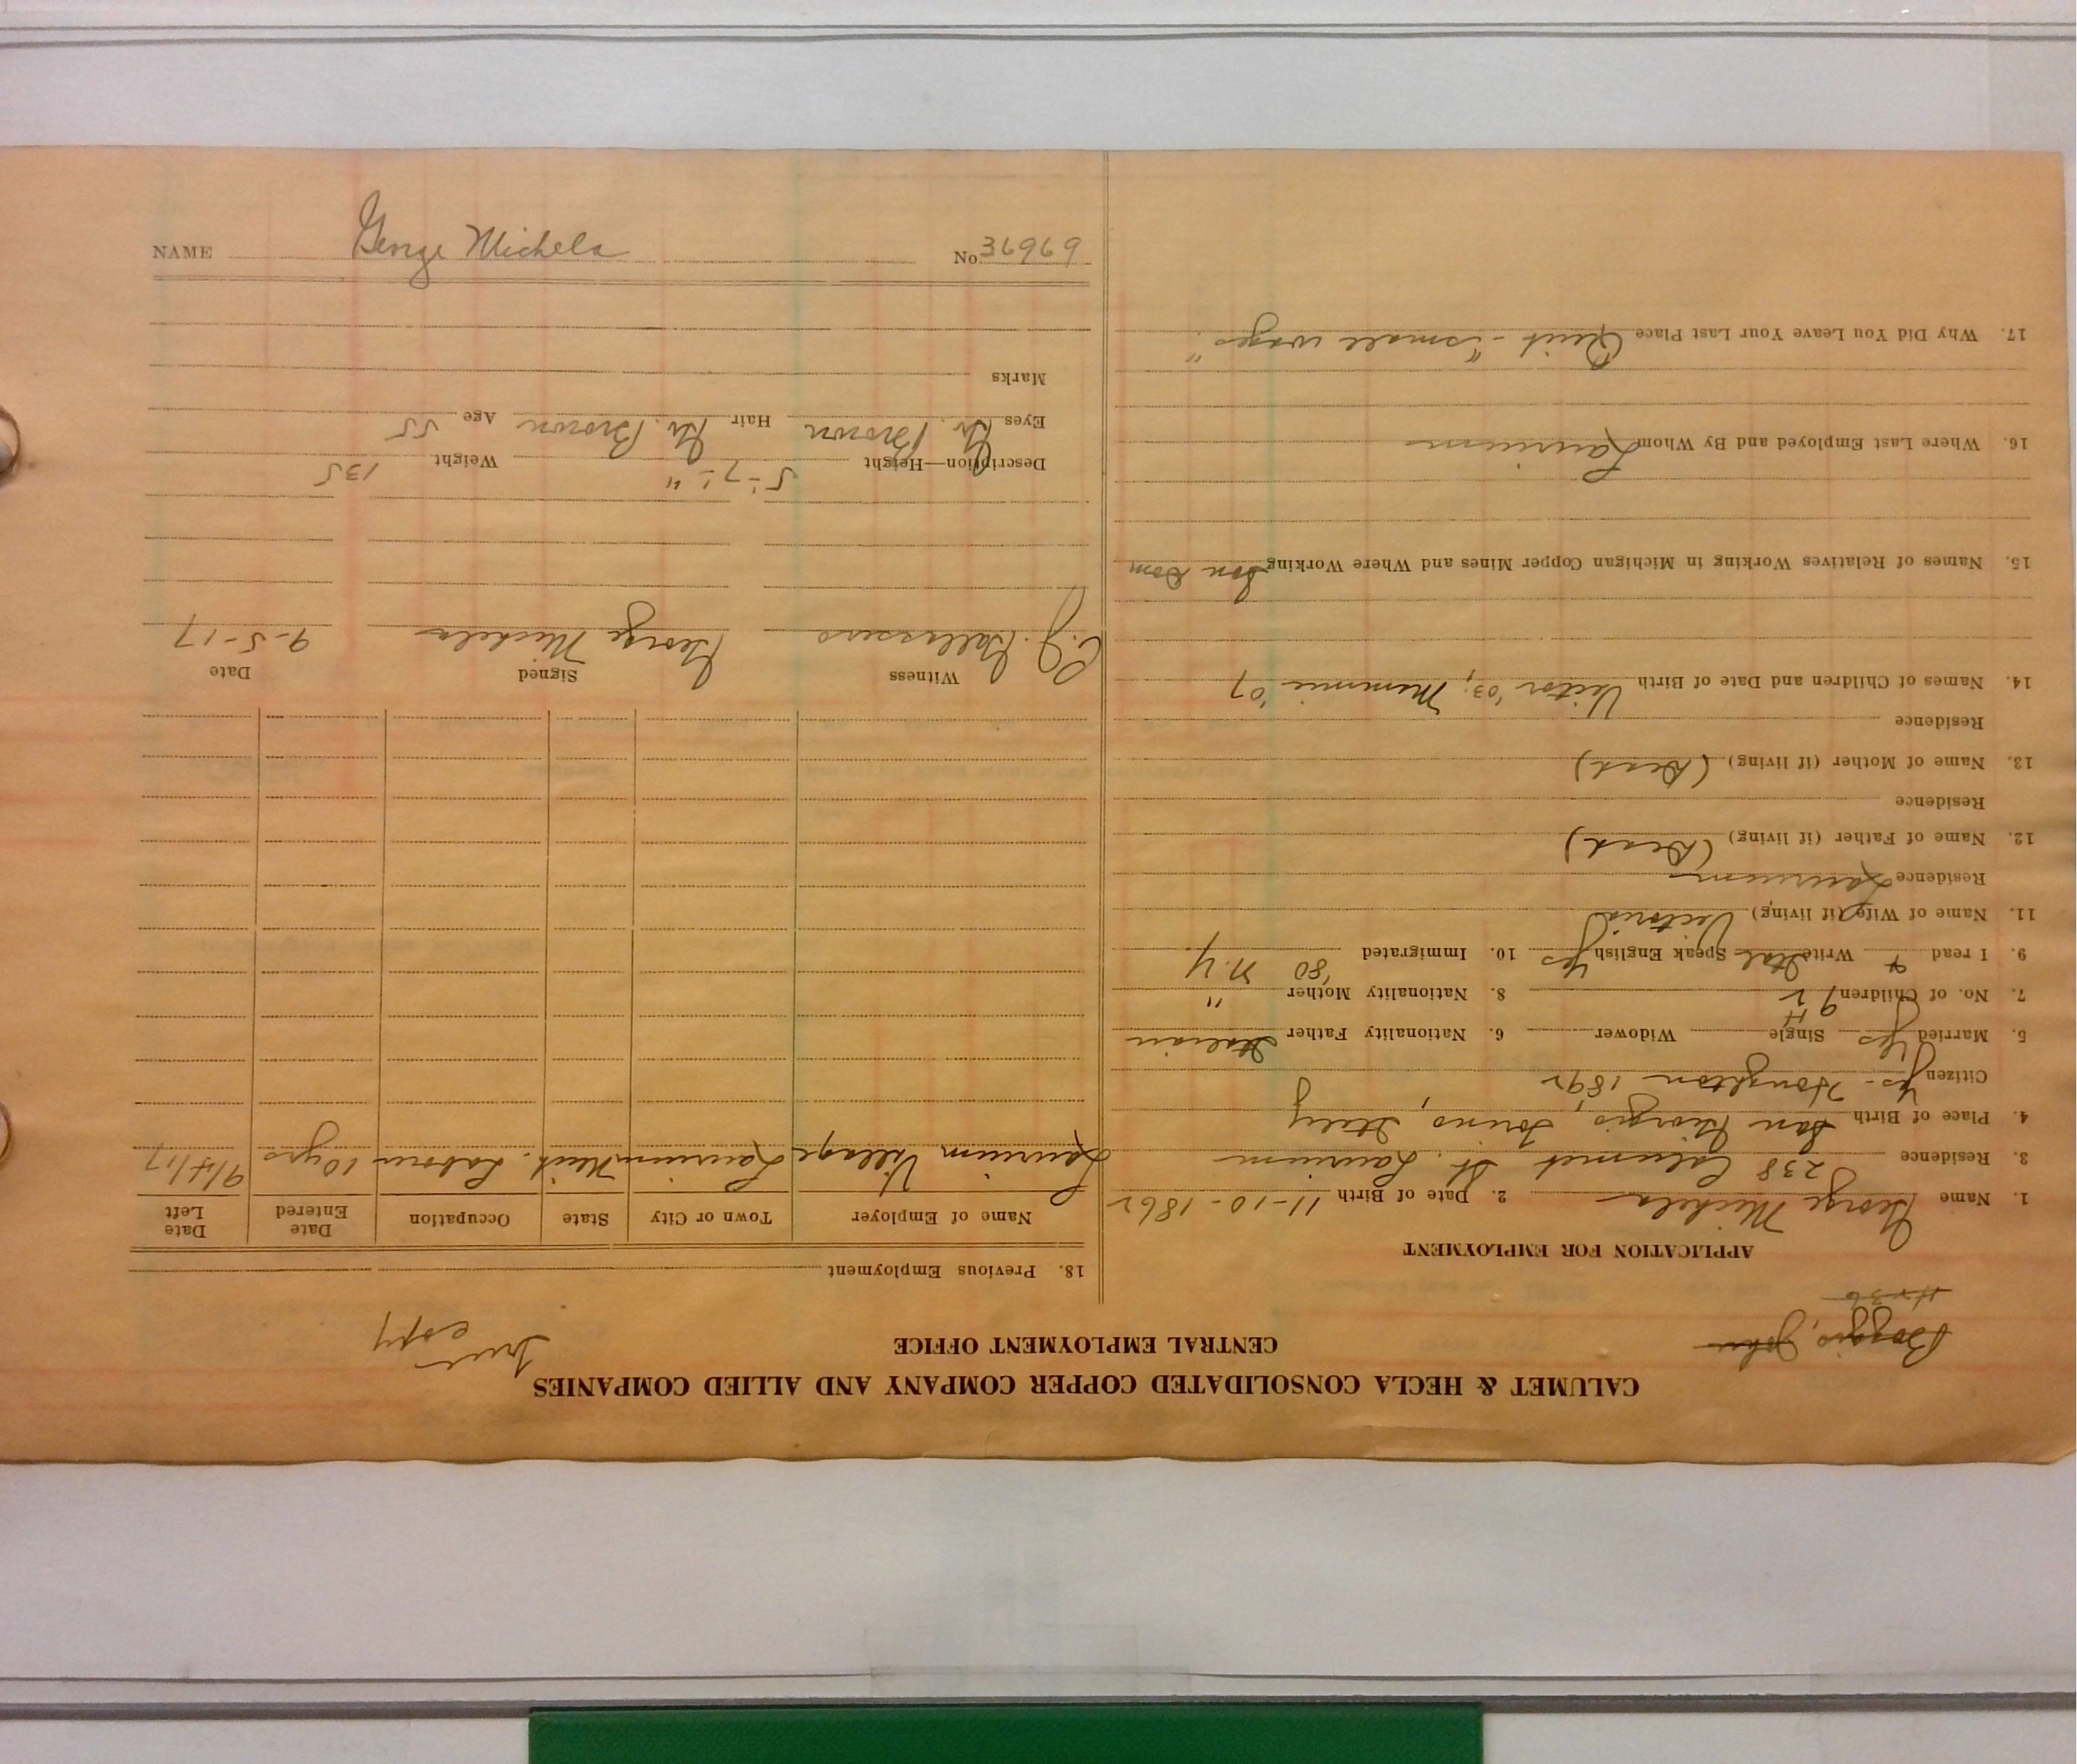 CALUMET & HECLA CONSOLIDATED COPPER COMPANY AND ALLIED COMPANIES
CENTRAL EMPLOYMENT OFFICE
Boggio, John
True copy
APPLICATION FOR EMPLOYMENT
1. Name George Michela 2. Date of Birth 11-10-1862
3. Residence 238 Calumet St. Laurium
4. Place of Birth San Giorgio, Torino, Italy
Citizen Yes - Houghton 1892
5. Married Yes Single Widower 6. Nationality Father Italian
7. No. of Children 2 8. Nationality Mother "
9. I read + Write Ital Speak English Yes 10. Immigrated '80 N.Y.
11. Name of Wife (if living) Victoria
Residence Laurium
12. Name of Father (if living) (Dead)
Residence
13. Name of Mother (if living) (Dead)
Residence
14. Names of Children and Date of Birth Victor '03, Minnie '07
15. Names of Relatives Working in Michigan Copper Mines and Where Working Son Dom
16. Where Last Employed and By Whom Laurium
17. Why Did You Leave Your Last Place Quit - "small wages"
18. Previous Employment
Name of Employer Town or City State Occupation Date Entered Date Left
Laurium Village Laurium Mich. Laborer 10 yrs 9/4/17
Witness Signed Date
George Michela 9-5-17
Description—Height 5'-7" Weight 135
Eyes Gr. Brown Hair Gr. Brown Age 55
Marks
NAME George Michela No. 36969